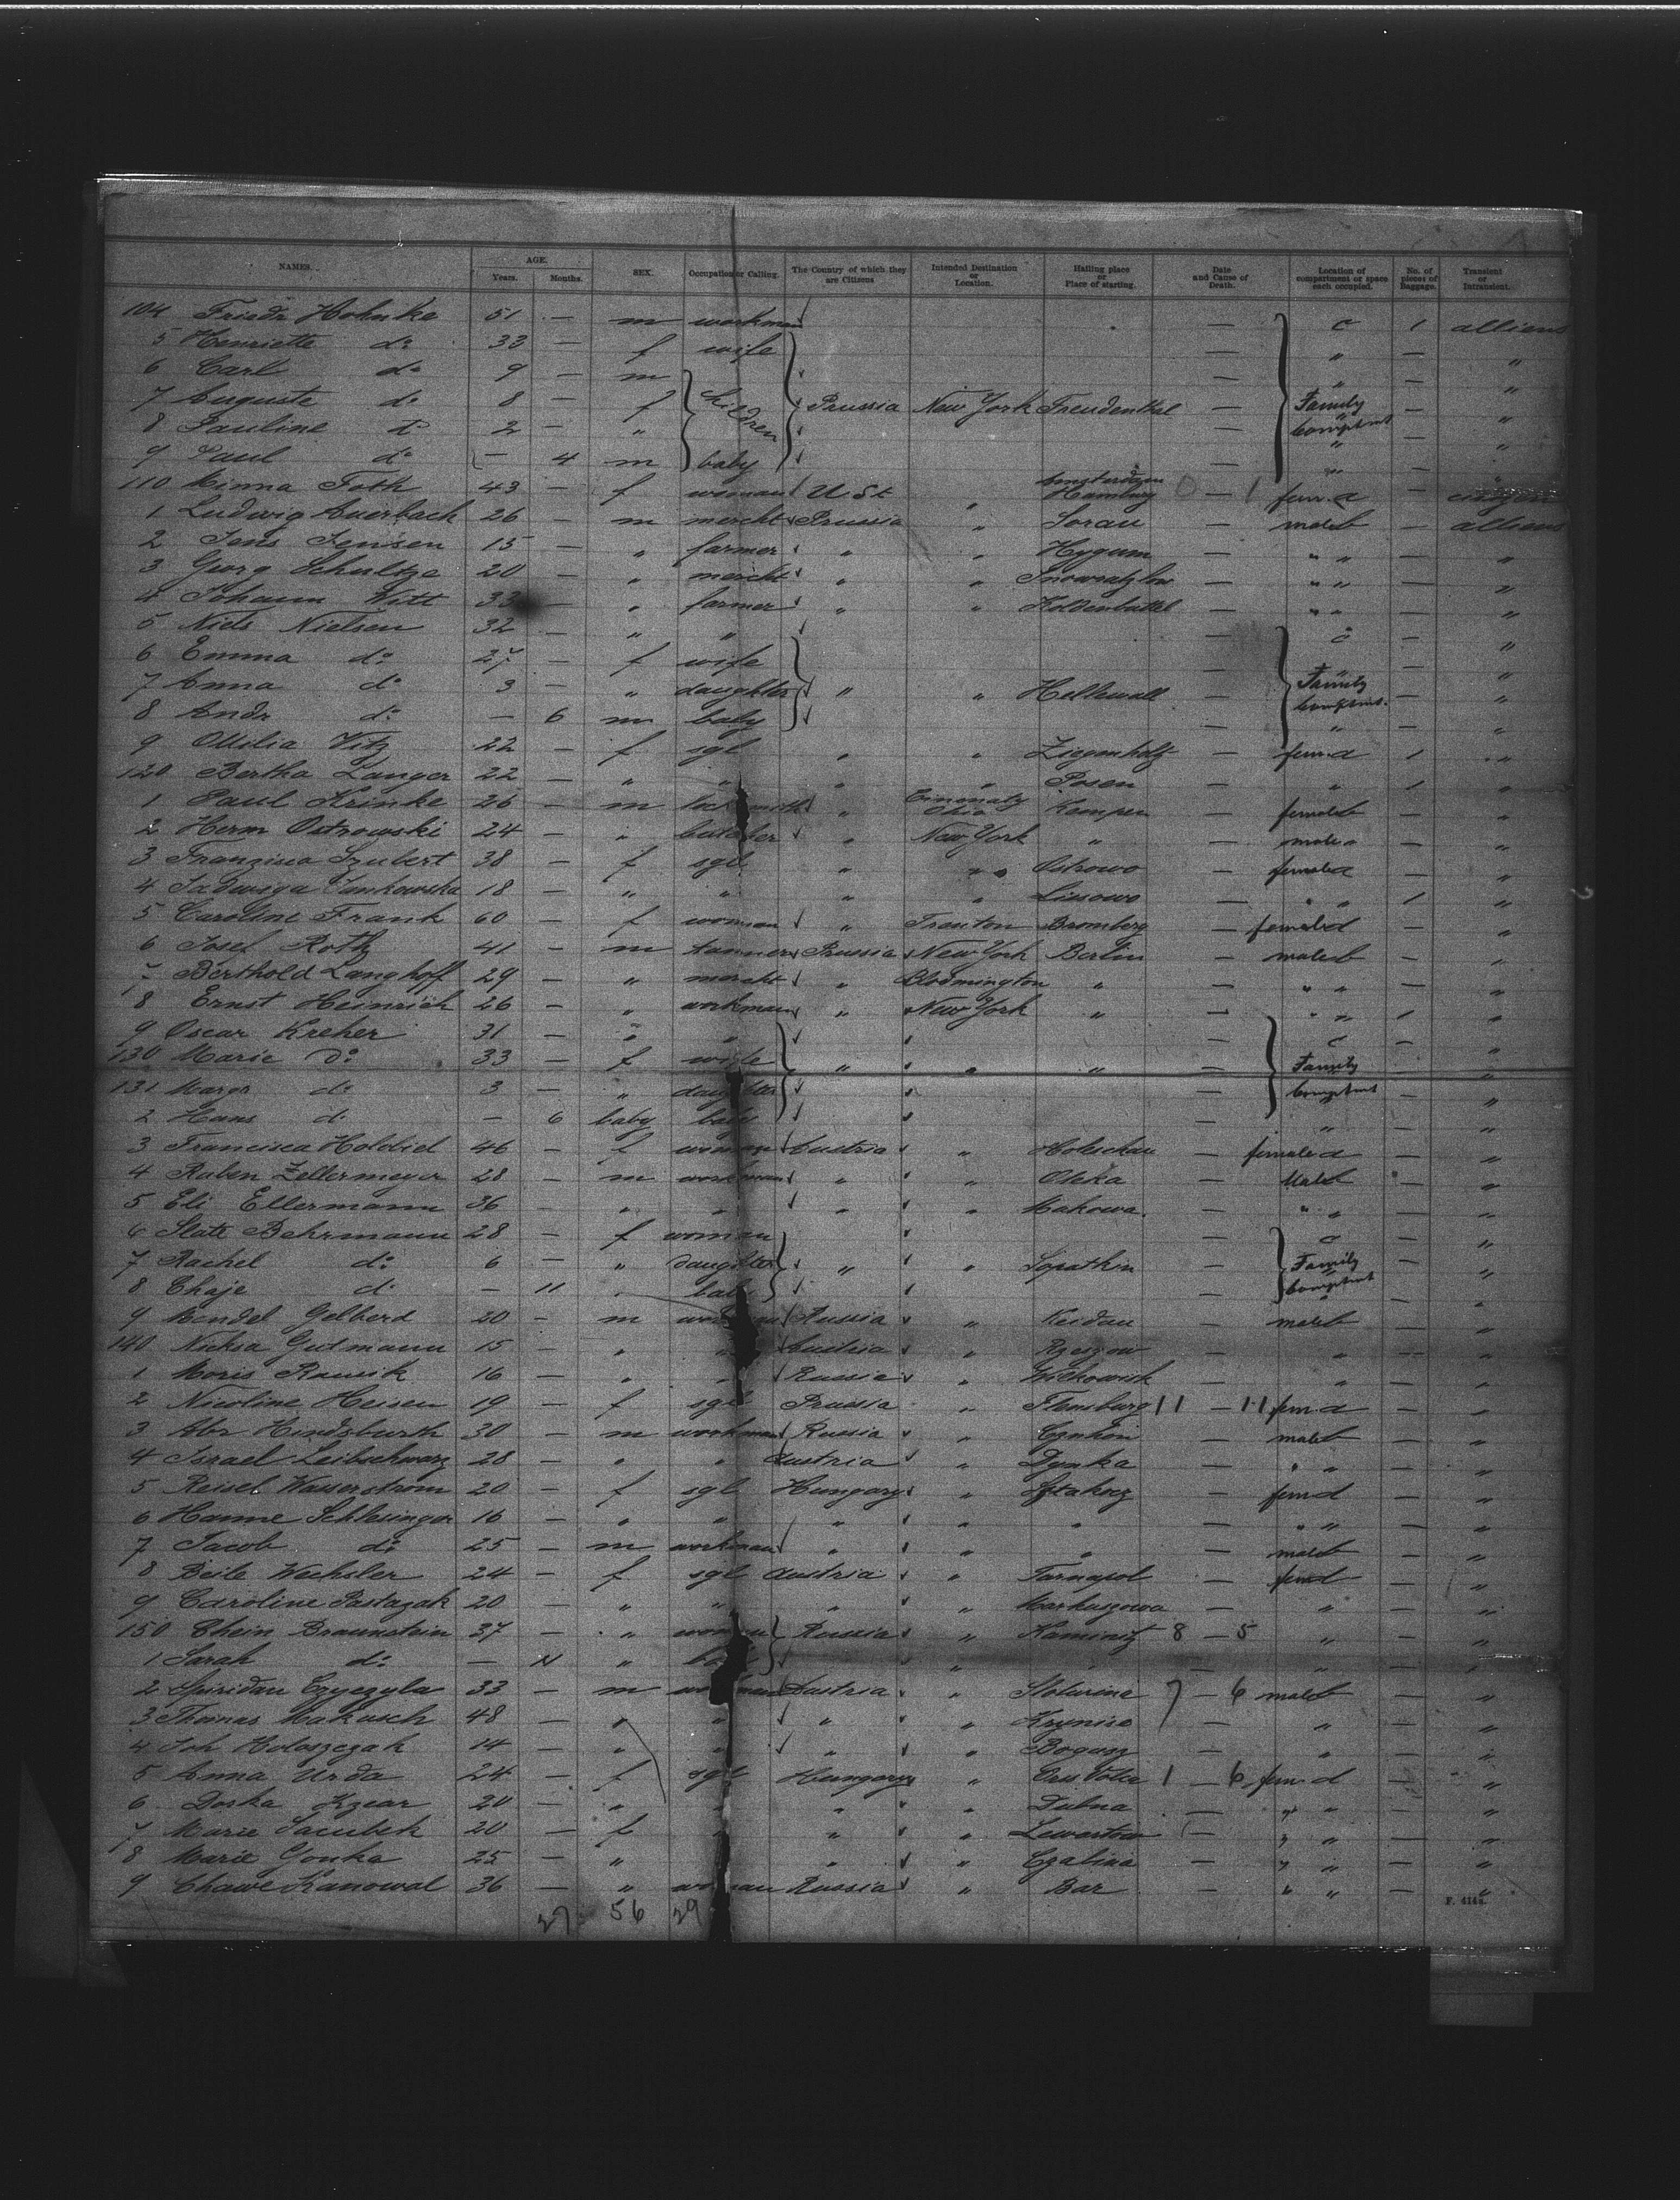 NAMES. AGE. Years. Months. SEX. Occupation or Calling. The Country of which they are Citizens Intended Destination or Location. Hailing place or Place of starting. Date and Cause of Death. Location of compartment or space each occupied. No. of pieces of Baggage. Transient or Intransient.
104 Friedr Hohnke 51 — m workman — c 1 alliens
5 Henriette do 33 — f wife — " — "
6 Carl do 9 — m — " — "
7 Auguste do 8 — f children Prussia New York Freudenthal — Family — "
8 Pauline do 2 — " — Comptmt — "
9 Paul do — 4 m baby — " — "
110 Minna Toth 43 — f woman U St " Amsterdam Hamburg 0 — 1 fem. a — citizen
1 Ludwig Auerbach 26 — m mercht Prussia " Sorau — male b — alliens
2 Jens Jensen 15 — " farmer " " Hygum — " " — "
3 Georg Schultze 20 — " mercht " " Inowratzlow — " " — "
4 Johann Witt 33 — " farmer " " Koldenbüttel — " " — "
5 Niels Nielsen 32 — " " — c — "
6 Emma do 27 — f wife — " — "
7 Anna do 3 — " daughter " " Hellewatt — Family Comptmt. — "
8 Andr do — 6 m baby — " — "
9 Ottilia Vitz 22 — f sgl " " Ziegenhals — fem d 1 "
120 Bertha Langer 22 — " " " " Posen — " 1 "
1 Paul Krinke 26 — m locksmith " Cincinnaty Ohio Kempen — female b — "
2 Herm Ostrowski 24 — " butcher " New York " — male " — "
3 Franzisca Szubert 38 — f sgl " " Ostrowo — female d — "
4 Jadwiga Jankowska 18 — " " " " Lissowo — " " 1 "
5 Caroline Frank 60 — f woman " Trenton Bromberg — female d — "
6 Josef Rotz 41 — m tanner Prussia New York Berlin — male b — "
7 Berthold Langhoff 29 — " mercht " Bloomington " — " " — "
8 Ernst Heinrich 26 — " workman " New York " — " " 1 "
9 Oscar Kreher 31 — " " — c — "
130 Marie do 33 — f wife " " " — Family — "
131 Margr do 3 — " daughter — Comptmt — "
2 Hans d. — 6 baby baby — " — "
3 Francisca Holdid 46 — f woman Austria " Holeschau — female d — "
4 Ruben Zellermeyer 28 — m workman " " Oleka — Male b "
5 Eli Ellermann 36 — " " " " Makowa. — " " — "
6 Slate Behrmann 28 — f woman — c — "
7 Rachel do 6 — " daughter " " Lopathin — Family — "
8 Chaje d. — 11 " baby — Comptmt — "
9 Mendel Gelberd 20 — m workman Russia " Keidau — male b — "
140 Nicksa Gutmann 15 — " " Austria " Rzeszow — " — "
1 Moris Rawsik 16 — " " Russia " — " — "
2 Nicoline Heisen 19 — f sgl Prussia " Flensburg 11 — 11 fem. d — "
3 Abr Hindsburth 30 — m workman Russia " — male b — "
4 Israel Leibschwarz 28 — " " Austria " Dynka — " " — "
5 Reisel Wasserstrom 20 — f sgl Hungary " — fem d — "
6 Hanne Schlesinger 16 — " " " " " — " " — "
7 Jacob do 25 — m workman " " " — male b — "
8 Beile Wechsler 24 — f sgl Austria " Tarnopol — fem d — "
9 Caroline Pastazak 20 — " " " " Markuszowa — " — "
150 Chein Braunstein 37 — " woman Russia " Kaminitz 8 — 5 " — "
1 Sarah do — " " — " — "
2 Spiridan Czyczyla 33 — m workman Austria " 7 — 6 male b — "
3 Thomas Makusch 48 — " " " " Krynice — " — "
4 Joh Holoszczak 14 — " " " " Bogusz — " — "
5 Anna Urda 24 — f sgl Hungary " 1 — 6 fem. d — "
6 Dorka 20 — " " " " Dubna — " " — "
7 Marie Jacubek 20 — f " " " — " " — "
8 Marie Gonka 25 — " " " Czalina — " " — "
9 Chawe Kanowal 36 — " woman Russia " Bar — " " — "
27 56 29
F. 414a.